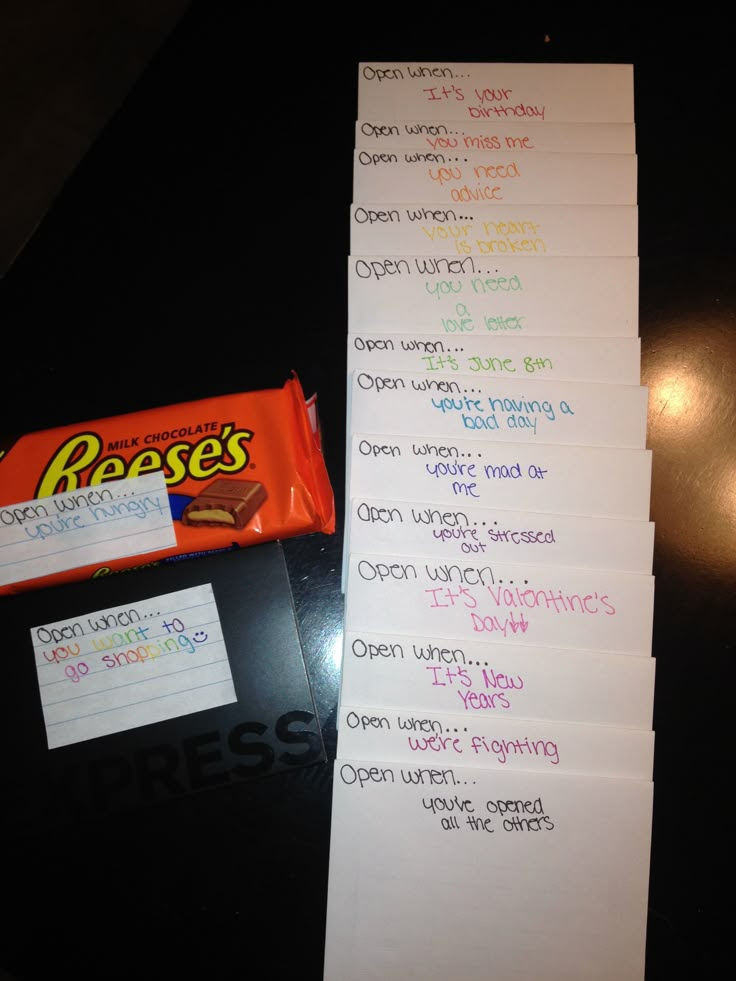 Open when...
It's your
birthday
Open when...
you miss me
Open when...
you need
advice
Open when...
your heart
is broken
Open when...
you need
a
love letter
Open when...
It's June 8th
Open when...
you're having a
bad day
Open when...
you're mad at
me
Open when...
you're stressed
out
Open when...
It's Valentine's
Day
Open when...
It's New
Years
Open when...
we're fighting
Open when...
you've opened
all the others
MILK CHOCOLATE
Reese's
Open when...
you're hungry
Open when...
you want to
go shopping
EXPRESS